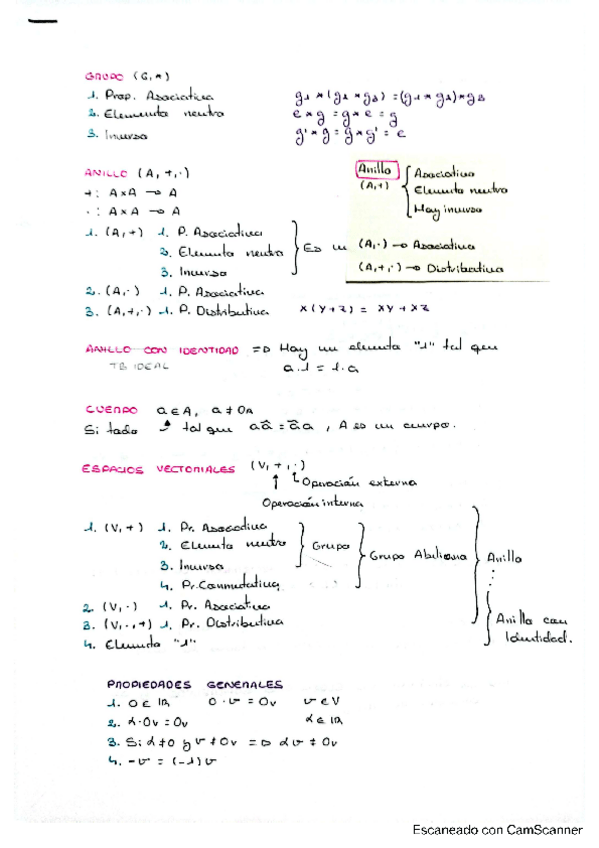 GRUPO (G, *)
1. Prop. Asociativa g1 * (g2 * g3) = (g1 * g2) * g3
2. Elemento neutro e * g = g * e = g
3. Inverso g' * g = g * g' = e
ANILLO (A, +, ·)
+ : A x A → A
· : A x A → A
1. (A, +) 1. P. Asociativa
2. Elemento neutro
3. Inverso
Es un
2. (A, ·) 1. P. Asociativa
3. (A, +, ·) 1. P. Distributiva x(y+z) = xy + xz
Anillo
(A, +) Asociativa
Elemento neutro
Hay inverso
(A, ·) → Asociativa
(A, +, ·) → Distributiva
ANILLO CON IDENTIDAD => Hay un elemento "1" tal que
TB IDEAL a·1 = 1·a
CUERPO a ∈ A, a ≠ 0A
Si todo tal que aâ = âa, A es un cuerpo.
ESPACIOS VECTORIALES (V, +, ·)
Operación externa
Operación interna
1. (V, +) 1. Pr. Asociativa
2. Elemento neutro
3. Inverso
4. Pr. Conmutativa
Grupo
Grupo Abeliano
Anillo
2. (V, ·) 1. Pr. Asociativa
3. (V, ·, +) 1. Pr. Distributiva
4. Elemento "1"
Anillo con
Identidad.
PROPIEDADES GENERALES
1. 0 ∈ IR 0 · v = 0v v ∈ V
2. α · 0v = 0v α ∈ IR
3. Si α ≠ 0 y v ≠ 0v => αv ≠ 0v
4. -v = (-1)v
Escaneado con CamScanner